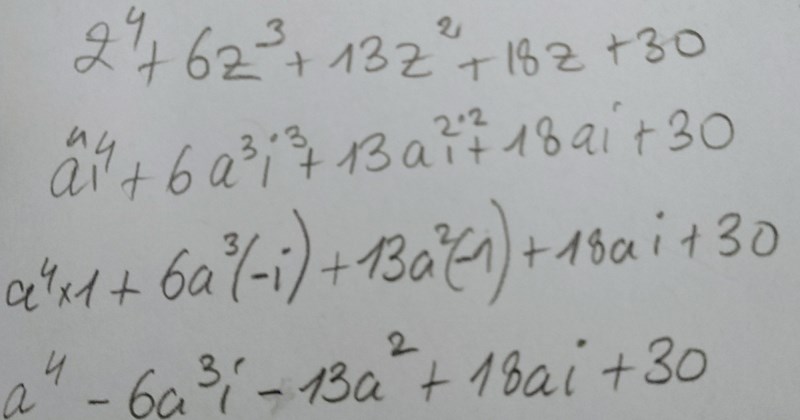 z⁴ + 6z³ + 13z² + 18z + 30
a⁴i⁴ + 6a³i³ + 13a²i² + 18ai + 30
a⁴×1 + 6a³(-i) + 13a²(-1) + 18ai + 30
a⁴ - 6a³i - 13a² + 18ai + 30